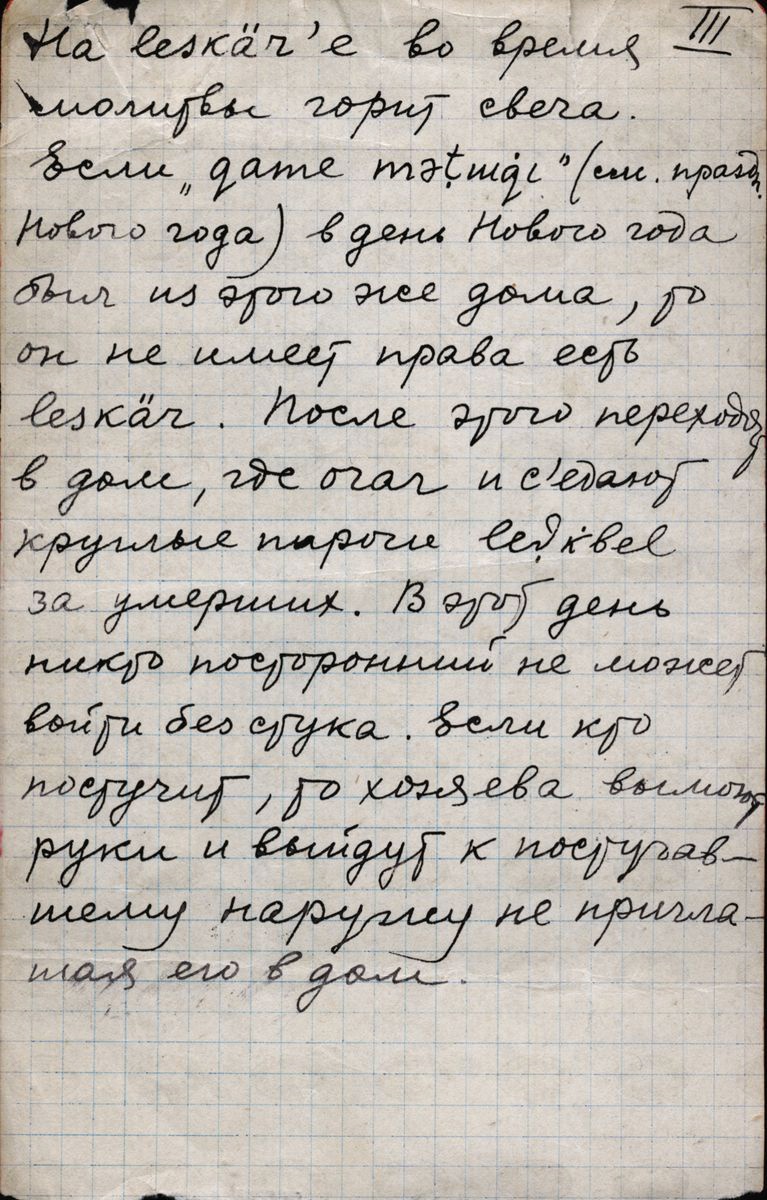 III
На leskär'е во время
молитвы горит свеча.
Если „qame mətx̣mǝgi" (см. праздн.
Нового года) в день Нового года
был из этого же дома, то
он не имеет права есть
leskär. После этого переходят
в дом, где очаг и с'едают
круглые пироги
за умерших. В этот день
никто посторонний не может
войти без стука. Если кто
постучит, то хозяева вымоют
руки и выйдут к постучав–
шему наружу не пригла–
шая его в дом.